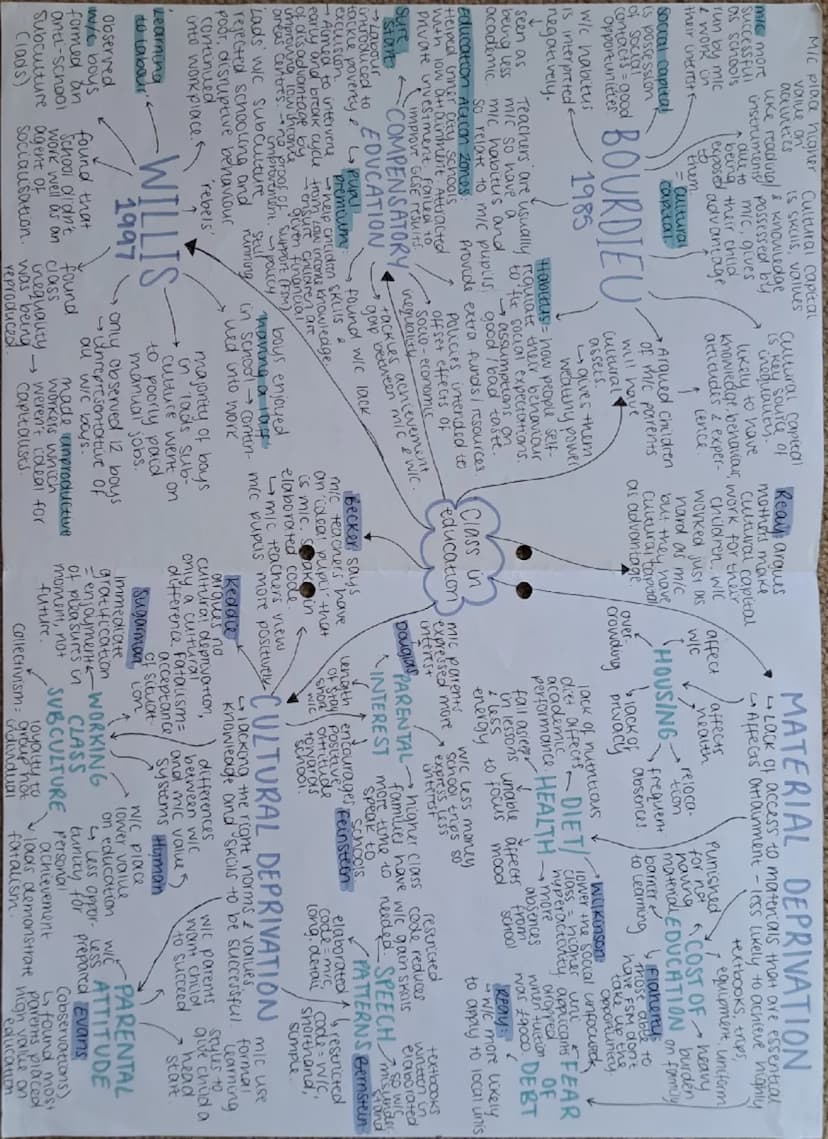 Class in
education
BOURDIEU
1985
M/C place higher
value on
activities
like reading
Cultural capital
is skills, values
& knowledge
possessed by
m/c, gives
their child
advantage
= cultural
capital
m/c more
successful
as schools
run by m/c
& work in
their interest
↳ due to
being
exposed
to
them
Social capital
is possession
of social
contacts = good
opportunities
w/c habitus
is interpreted
negatively.
Teachers are usually
m/c so have a
m/c habitus and
so relate to m/c pupils.
seen as
being less
academic
Habitus = how people self-
regulate their behaviour
to fit social expectations.
→ assumptions on
good/bad taste.
Argued children
of m/c parents
will have
cultural
assets.
↳ gives them
wealthy power
Cultural capital
is key source of
inequality.
likely to have
knowledge behaviour,
attitudes & exper-
ience
Reay argues
mothers make
cultural capital
work for their
children. W/C
worked just as
hard as m/c
but they have
cultural capital
as advantage
COMPENSATORY
EDUCATION
Education Action Zones
helped inner city schools
with low attainment. Attracted
private investment. Failed to
improve GCSE results
Sure
Start
→ Labour
introduced to
tackle poverty &
exclusion
→ Aimed to intervene
early and break cycle
of disadvantage by
improving low income
areas centers. → no proof of
improvement.
Pupil
premium:
→ help children
from low income
→ ensure children are
given financial
support (FSM)
→ policy
still
running
→ found w/c lack
knowledge
skills &
Policies intended to
provide extra funds/resources
offset effects of
socio-economic
inequality
→ tackles achievement
gap between m/c & w/c.
WILLIS
1997
Learning
to labour
observed
w/c boys
formed an
anti-school
subculture
(lads)
lads w/c subculture
rejected schooling and
poor, disruptive behaviour.
continued
into workplace.
'rebels'
found that
school didn't
work well as an
agent of
socialisation.
found
class
inequality
was being
reproduced.
→ only observed 12 boys
→ unrepresentative of
all w/c boys.
made unproductive
workers which
weren't ideal for
capitalists.
majority of boys
in 'lads' sub-
culture went on
to poorly paid
manual jobs.
boys enjoyed
having a laff
in school → contin-
ued into work
Becker says
m/c teachers have
an ideal pupil that
is m/c, speaks in
elaborated code.
↳ m/c teachers view
m/c pupils more positively
CULTURAL DEPRIVATION
↳ lacking the right norms & values,
knowledge and skills to be successful.
Keddie
argues no
cultural deprivation,
only a cultural
difference
PARENTAL
INTEREST
Douglas
m/c parents
expressed more
interest
w/c less money
school trips so
express less
interest
→ higher class
families have
more time to
speak to
schools
Feinstein
encourages
positive
attitude
towards
school.
length
of stay
short
w/c
WORKING
CLASS
SUBCULTURE
Sugarman
Immediate
gratification
= enjoyment
of pleasures in
moment, not
future.
Fatalism =
acceptance
of situat-
ion
collectivism:
loyalty to
group not
individual
differences
between w/c
and m/c value
systems
Hyman
↳ w/c place
lower value
on education
↳ less oppor-
tunity for
personal
achievement
↳ lads demonstrate
fatalism.
PARENTAL
ATTITUDE
w/c
less
prepared
w/c parents
want child
to succeed
m/c use
formal
learning
styles to
give child a
head
start.
Evans
(observations)
↳ found most
parents placed
high value on
education
SPEECH
PATTERNS
Bernstein
restricted
code reduces
w/c gain skills
needed
textbooks
written in
elaborated
so w/c
misunder-
stand
elaborated
code = m/c,
long, detail
↳ restricted
code = w/c,
shorthand,
simple.
MATERIAL DEPRIVATION
↳ Lack of access to materials that are essential
↳ Affects attainment - less likely to achieve highly
HOUSING
affect
w/c
affects
health
over-
crowding
lack of
privacy
reloca-
tion
frequent
absences
DIET/
HEALTH
lack of nutritious
diet affects
academic
performance
fall asleep
in lessons
& less
energy
unable
to focus
affects
mood
→ more
absences
from
school
Wilkinson
lower the social
class = higher
hyperactivity
COST OF
EDUCATION
Punished
for not
having
material
barrier
to learning
textbooks, trips,
equipment, uniform
→ heavy
burden
on family
Flaherty
those able to
have FSM don't
take up the
opportunity
FEAR
OF
DEBT
uni
applicants
dropped
when tuition
was £9000.
Reay:
↳ w/c more likely
to apply to local unis